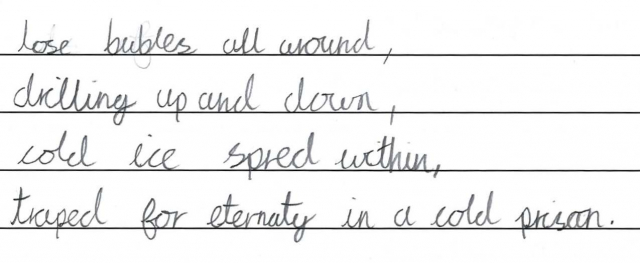 lose bubles all around,
drilling up and down,
cold ice spred within,
traped for eternaty in a cold prison.